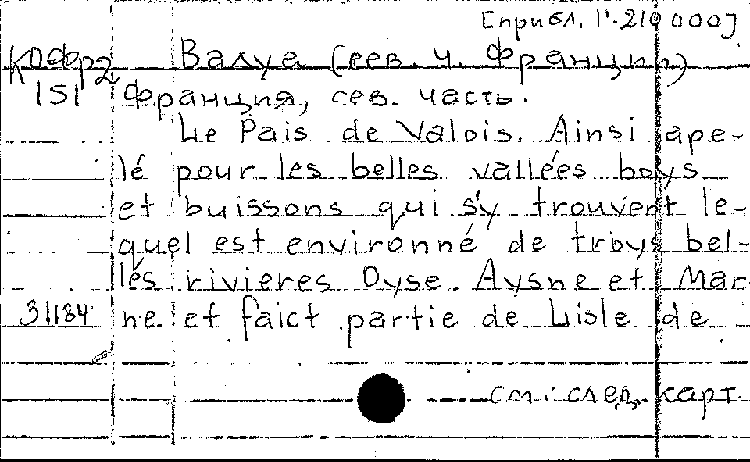 [прибл. 1:210 000]
Ко Фр 2 Валуа (сев. ч. Франции)
151 Франция, сев. часть.
Le Pais de Valois. Ainsi ape-
lé pour les belles vallées boys
et buissons qui s'y trouvent le-
quel est environné de troys bel-
les rivieres Oyse. Aysne et Mar
ne. et faict partie de Lisle de
31134
см. след. карт.